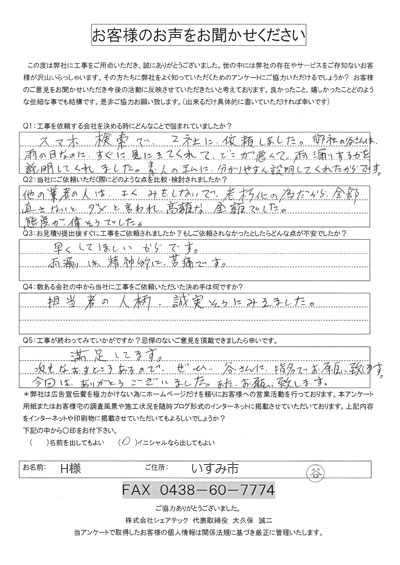 お客様のお声をお聞かせください
この度は弊社に工事をご用命いただき、誠にありがとうございました。世の中には弊社の存在やサービスをご存知ないお客
様が沢山いらっしゃいます。その方たちに弊社をよく知っていただくためのアンケートにご協力いただけるでしょうか? お客様
のご意見をお聞かせいただき今後の活動に反映させていただきたいと考えております。良かったこと、嬉しかったことどのよう
な些細な事でも結構です。是非ご協力お願い致します。(出来るだけ具体的に書いていただければ幸いです)
Q1:工事を依頼する会社を決める時にどんなことで悩まれていましたか?
スマホ 検索で 2社に依頼しました。御社の谷さんは、
雨の日なのに、すぐに見にきてくれて、どこが悪くて、雨漏りするかを
説明してくれました。素人の私に、分かりやすく説明してくれたからです。
Q2:当社にご依頼いただく際にどのような点を比較・検討されましたか?
他の業者の人は、よくみもしないで、老朽化の為だから、全部
直さないとダメと言われ、高額な金額でした。
態度が、偉そうでした。
Q3:お見積り提出後すぐに工事をご依頼されましたか?もしご依頼されなかったとしたらどんな点が不安でしたか?
早くしてほしいからです。
雨漏は、精神的に、苦痛です。
Q4:数ある会社の中から当社に工事をご依頼いただいた決め手は何ですか?
担当者の人柄、誠実そうにみえました。
Q5:工事が終わってみていかがですか?忌憚のないご意見を頂戴できましたら幸いです。
満足してます。
次もなおすところあるので、ぜひ、谷さんに、指名でお願い致します。
今回は、ありがとうございました。再、お願い致します。
*弊社は広告宣伝費を極力かけない為にホームページだけを頼りにお客様への営業活動を行っております。本アンケート
用紙またはお客様宅の調査風景や施工状況を随時ブログ形式のインターネットに掲載させていただいております。上記内容
をインターネットや印刷物に掲載させていただいてもよろしいでしょうか?
下記の中から〇印をお付け下さい。
( )名前を出してもよい (〇)イニシャルなら出してもよい
お名前: H様 ご住所: いすみ市
谷
FAX 0438-60-7774
ご協力ありがとうございました。
株式会社シェアテック 代表取締役 大久保 誠二
当アンケートで取得したお客様の個人情報は関係法規に基づき厳正に管理いたします。